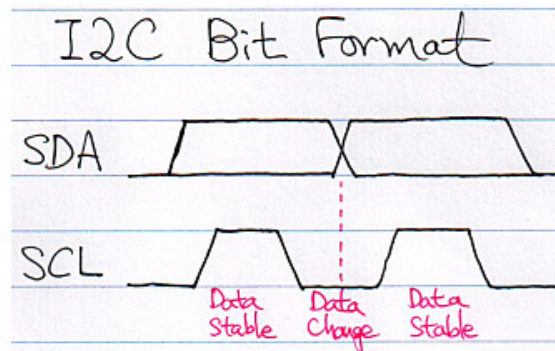 I2C Bit Format
SDA
SCL
Data Stable
Data Change
Data Stable